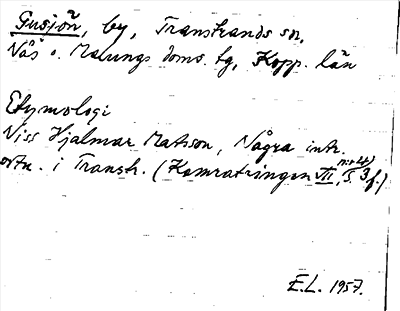 Gusjön, by, Transtrands sn,
Näs o. Malungs doms. tg, Kopp. län
Etymologi
Viss Hjalmar Matsson, Några intr.
ortn. i Transtr. (Kamratringen VII, nr 4, s. 3 f.)
E.L. 1957.